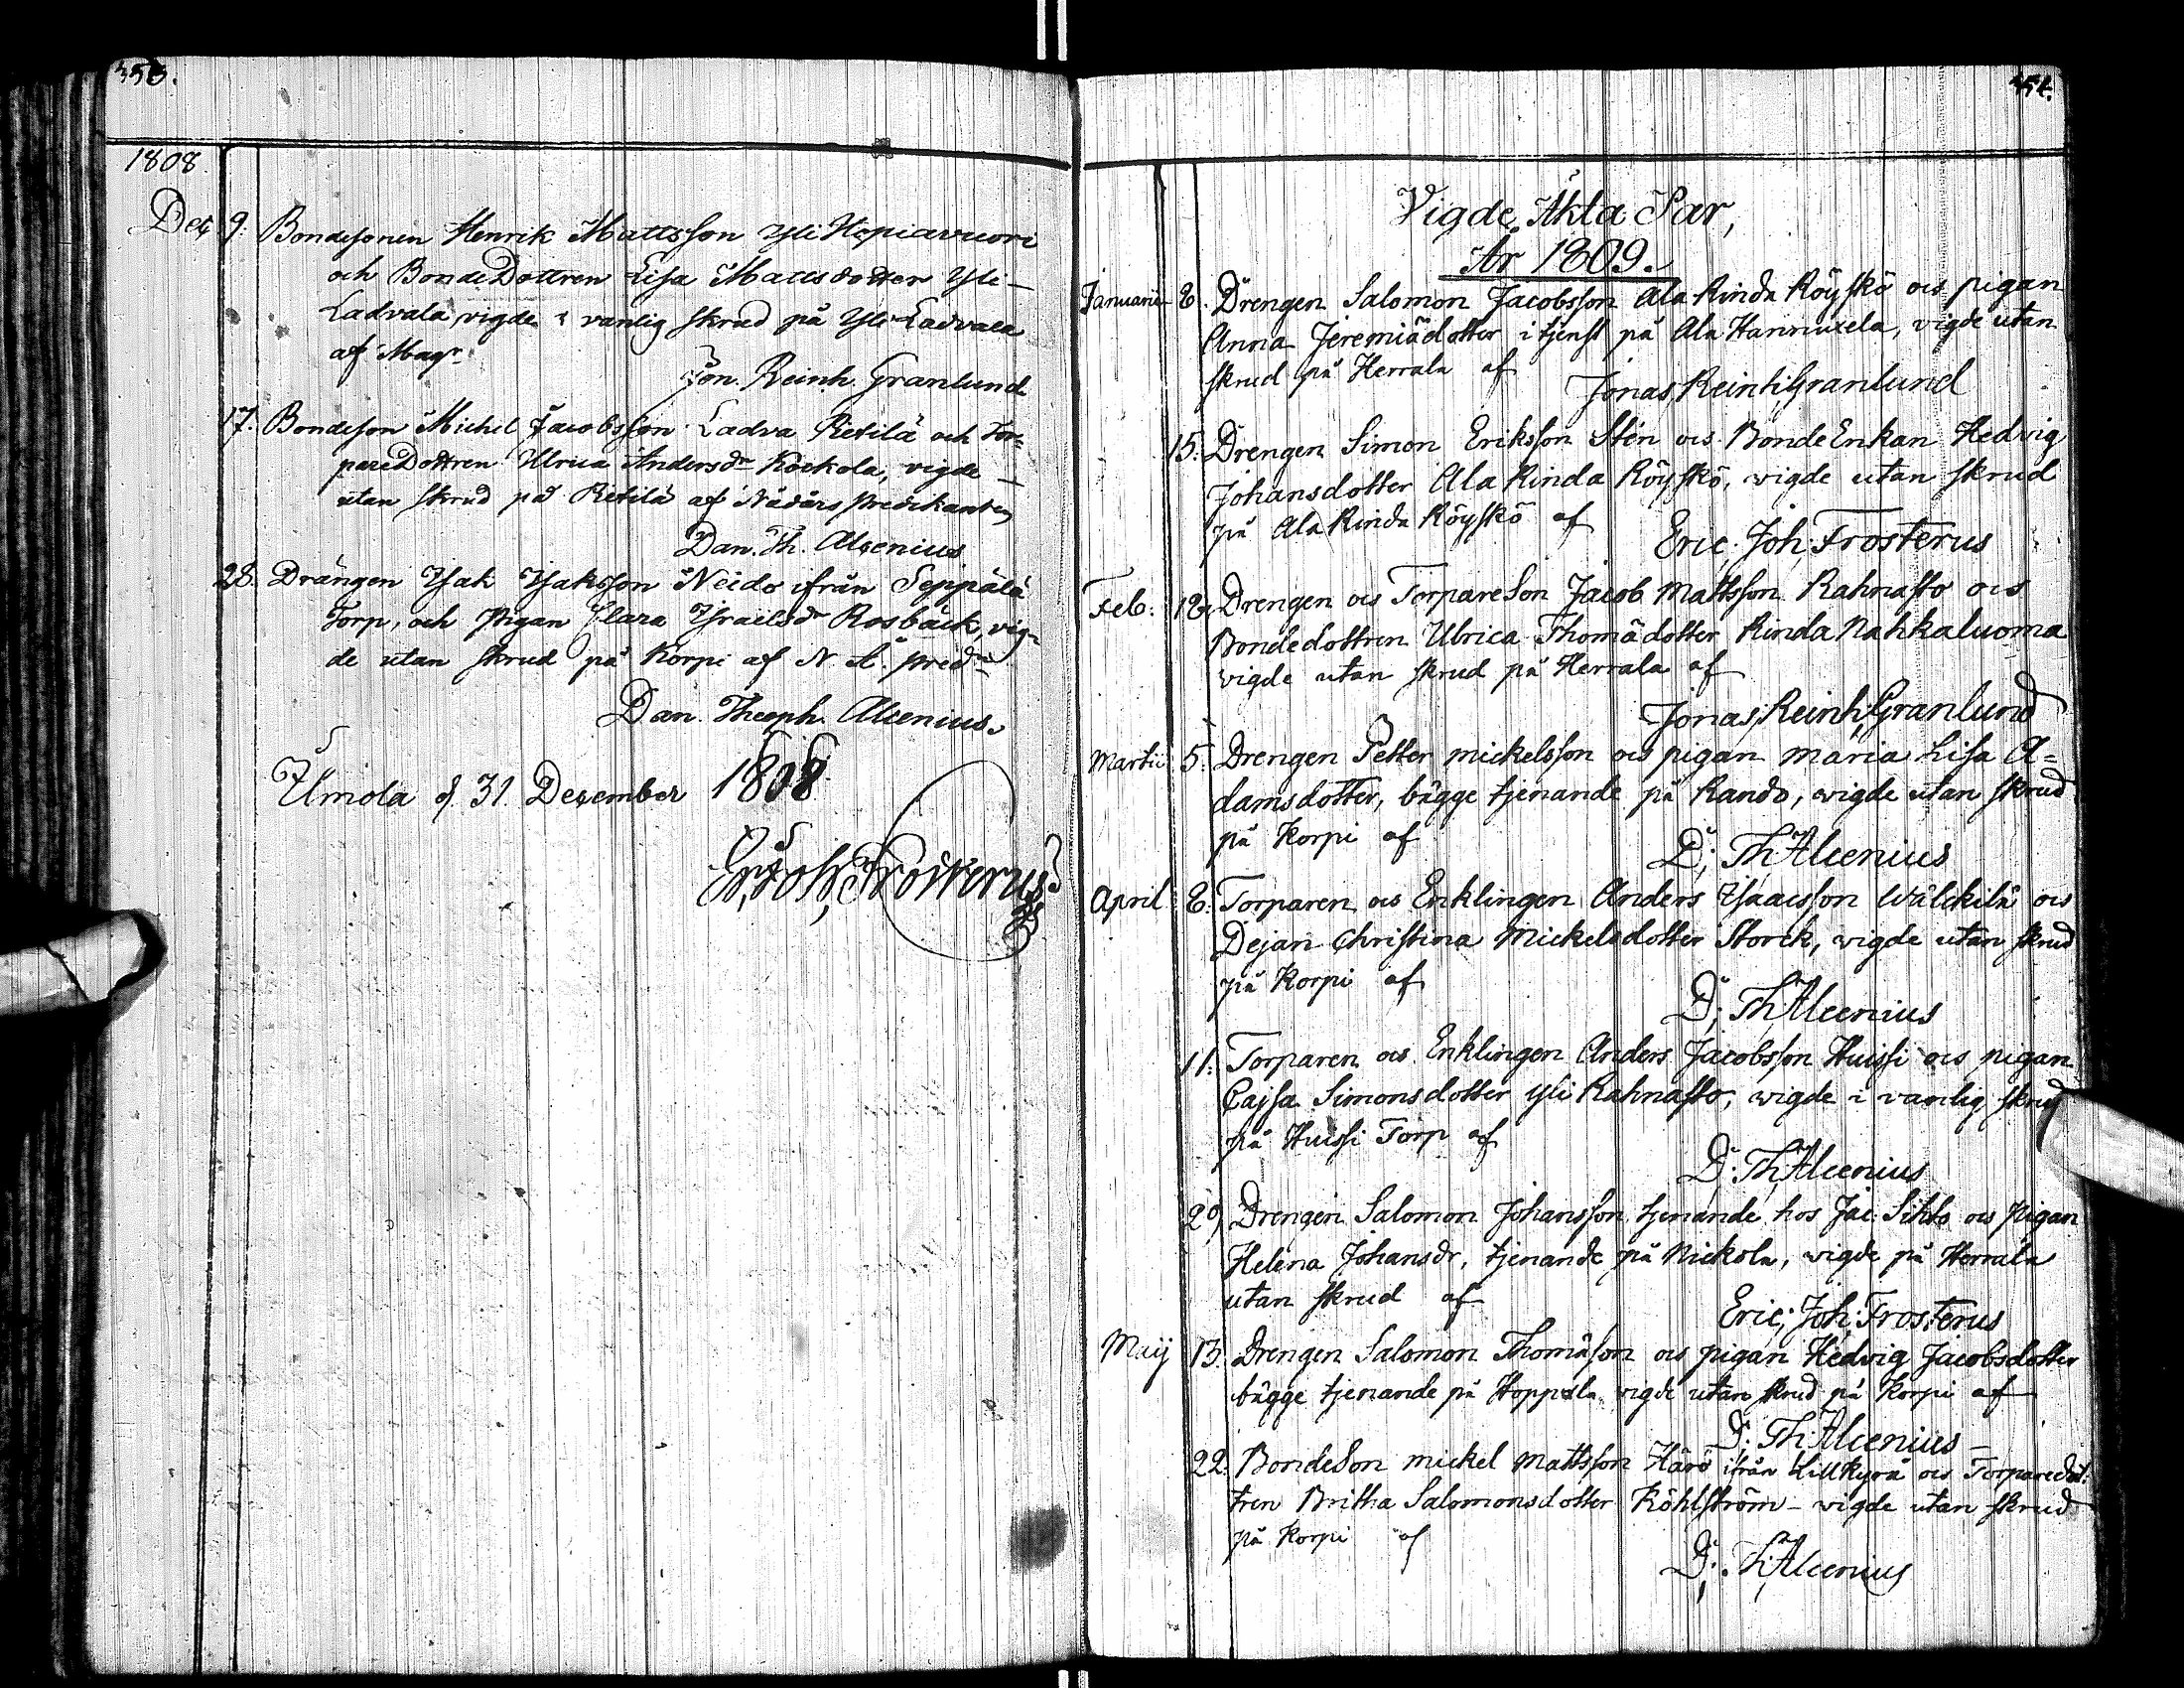 353.
1808.
Dec 9. Bondesonen Henrik Mattsson Yli Hopiavuori
och BondeDottren Lisa Mattsdotter Yli-
Ladvala, vigde i vanlig skrud på Yli Ladvala
af Magr
Jon. Reinh. Granlund
17. Bondeson Michel Jacobsson Ladva Pietilä och Tor=
pareDottren Ulrica Andersdr Köckola, vigde
utan skrud på Pietilä af Nådårs predikanten
Dan. Th. Alcenius
28. Drängen Isak Isaksson Neido ifrån Seppälä
Torp, och Pigan Clara Israelsdr Rosbäck, vig=
de utan skrud på Korpi af N. Å. pred:
Dan. Theoph. Alcenius.
Ilmola d. 31. December 1808.
Er, Joh, Frosterus
354.
Vigde Äkta Par,
År 1809.
Januarii 8. Drengen Salomon Jacobsson Ala Rinda Köyskö och pigan
Anna Jeremiädotter i tjenst på Ala Hannuxela, vigde utan
skrud på Herrala af
Jonas, Reinh, Granlund
15. Drengen Simon Eriksson Stén och BondeEnkan Hedvig
Johansdotter Ala Rinda Köyskö, wigde utan skrud
på Ala Rinda Köyskö af
Eric. Joh: Frosterus
Feb: 12. Drengen och TorpareSon Jacob Mattsson Rahnasto och
Bondedottren Ulrica Thomädotter Rinda Nahkaluoma
vigde utan skrud på Herrala af
Jonas, Reinh, Granlund
Martii 5. Drengen Petter Mickelsson och pigan Maria Lisa A=
damsdotter, bägge tjenande på Rando, wigde utan skrud
på Korpi af
D: Th Alcenius
April 8. Torparen och Enklingen Anders Isaacsson Wälckilä och
Dejan Christina Mickelsdotter Storck, wigde utan skrud
på Korpi af
D: Th Alcenius
11: Torparen och Enklingen Anders Jacobsson Huissi och pigan
Cajsa Simonsdotter Yli Rahnasto, wigde i vanlig skrud
på Huissi Torp af
D: Th Alcenius
29 Drengen Salomon Johansson tjenande hos Jac: Sihto och Pigan
Helena Johansdr, tjenande på Nickola, wigde på Herrala
utan skrud af
Eric; Joh: Frosterus
Maij 13. Drengen Salomon Thomäson och pigan Hedvig Jacobsdotter
bägge tjenande på Hoppala vigde utan skrud på Korpi af
D: Th: Alcenius
22. BondeSon Mickel Mattsson Härö ifrån Lillkyrå och Torparedot:
tren Britha Salomonsdotter Köhlström - wigde utan skrud
på Korpi af
D: Th: Alcenius